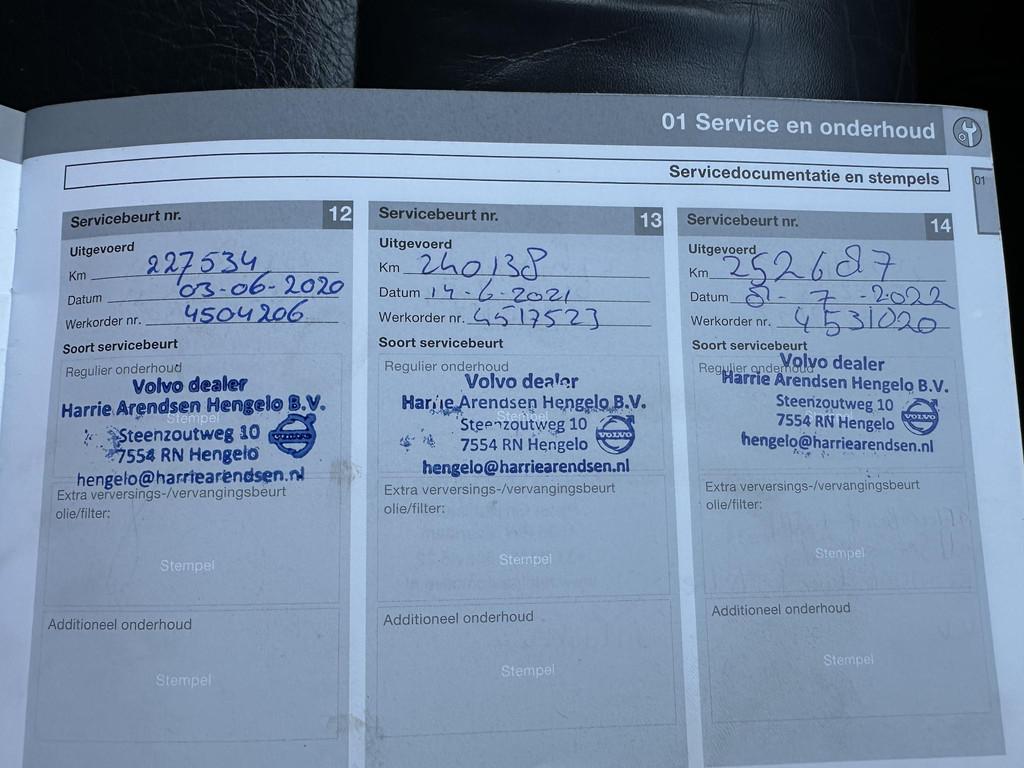 01 Service en onderhoud
Servicedocumentatie en stempels
01
Servicebeurt nr. 12
Uitgevoerd
Km 227534
Datum 03-06-2020
Werkorder nr. 4504206
Soort servicebeurt
Regulier onderhoud
Stempel
Volvo dealer
Harrie Arendsen Hengelo B.V.
Steenzoutweg 10
7554 RN Hengelo
VOLVO
hengelo@harriearendsen.nl
Extra verversings-/vervangingsbeurt
olie/filter:
Stempel
Additioneel onderhoud
Stempel
Servicebeurt nr. 13
Uitgevoerd
Km 240138
Datum 14-6-2021
Werkorder nr. 4517523
Soort servicebeurt
Regulier onderhoud
Volvo dealer
Harrie Arendsen Hengelo B.V.
Stempel
Steenzoutweg 10
7554 RN Hengelo
VOLVO
hengelo@harriearendsen.nl
Extra verversings-/vervangingsbeurt
olie/filter:
Stempel
Additioneel onderhoud
Stempel
Servicebeurt nr. 14
Uitgevoerd
Km 252687
Datum 01-7-2022
Werkorder nr. 4531020
Soort servicebeurt
Regulier onderhoud
Volvo dealer
Harrie Arendsen Hengelo B.V.
Steenzoutweg 10
7554 RN Hengelo
VOLVO
hengelo@harriearendsen.nl
Extra verversings-/vervangingsbeurt
olie/filter:
Stempel
Additioneel onderhoud
Stempel